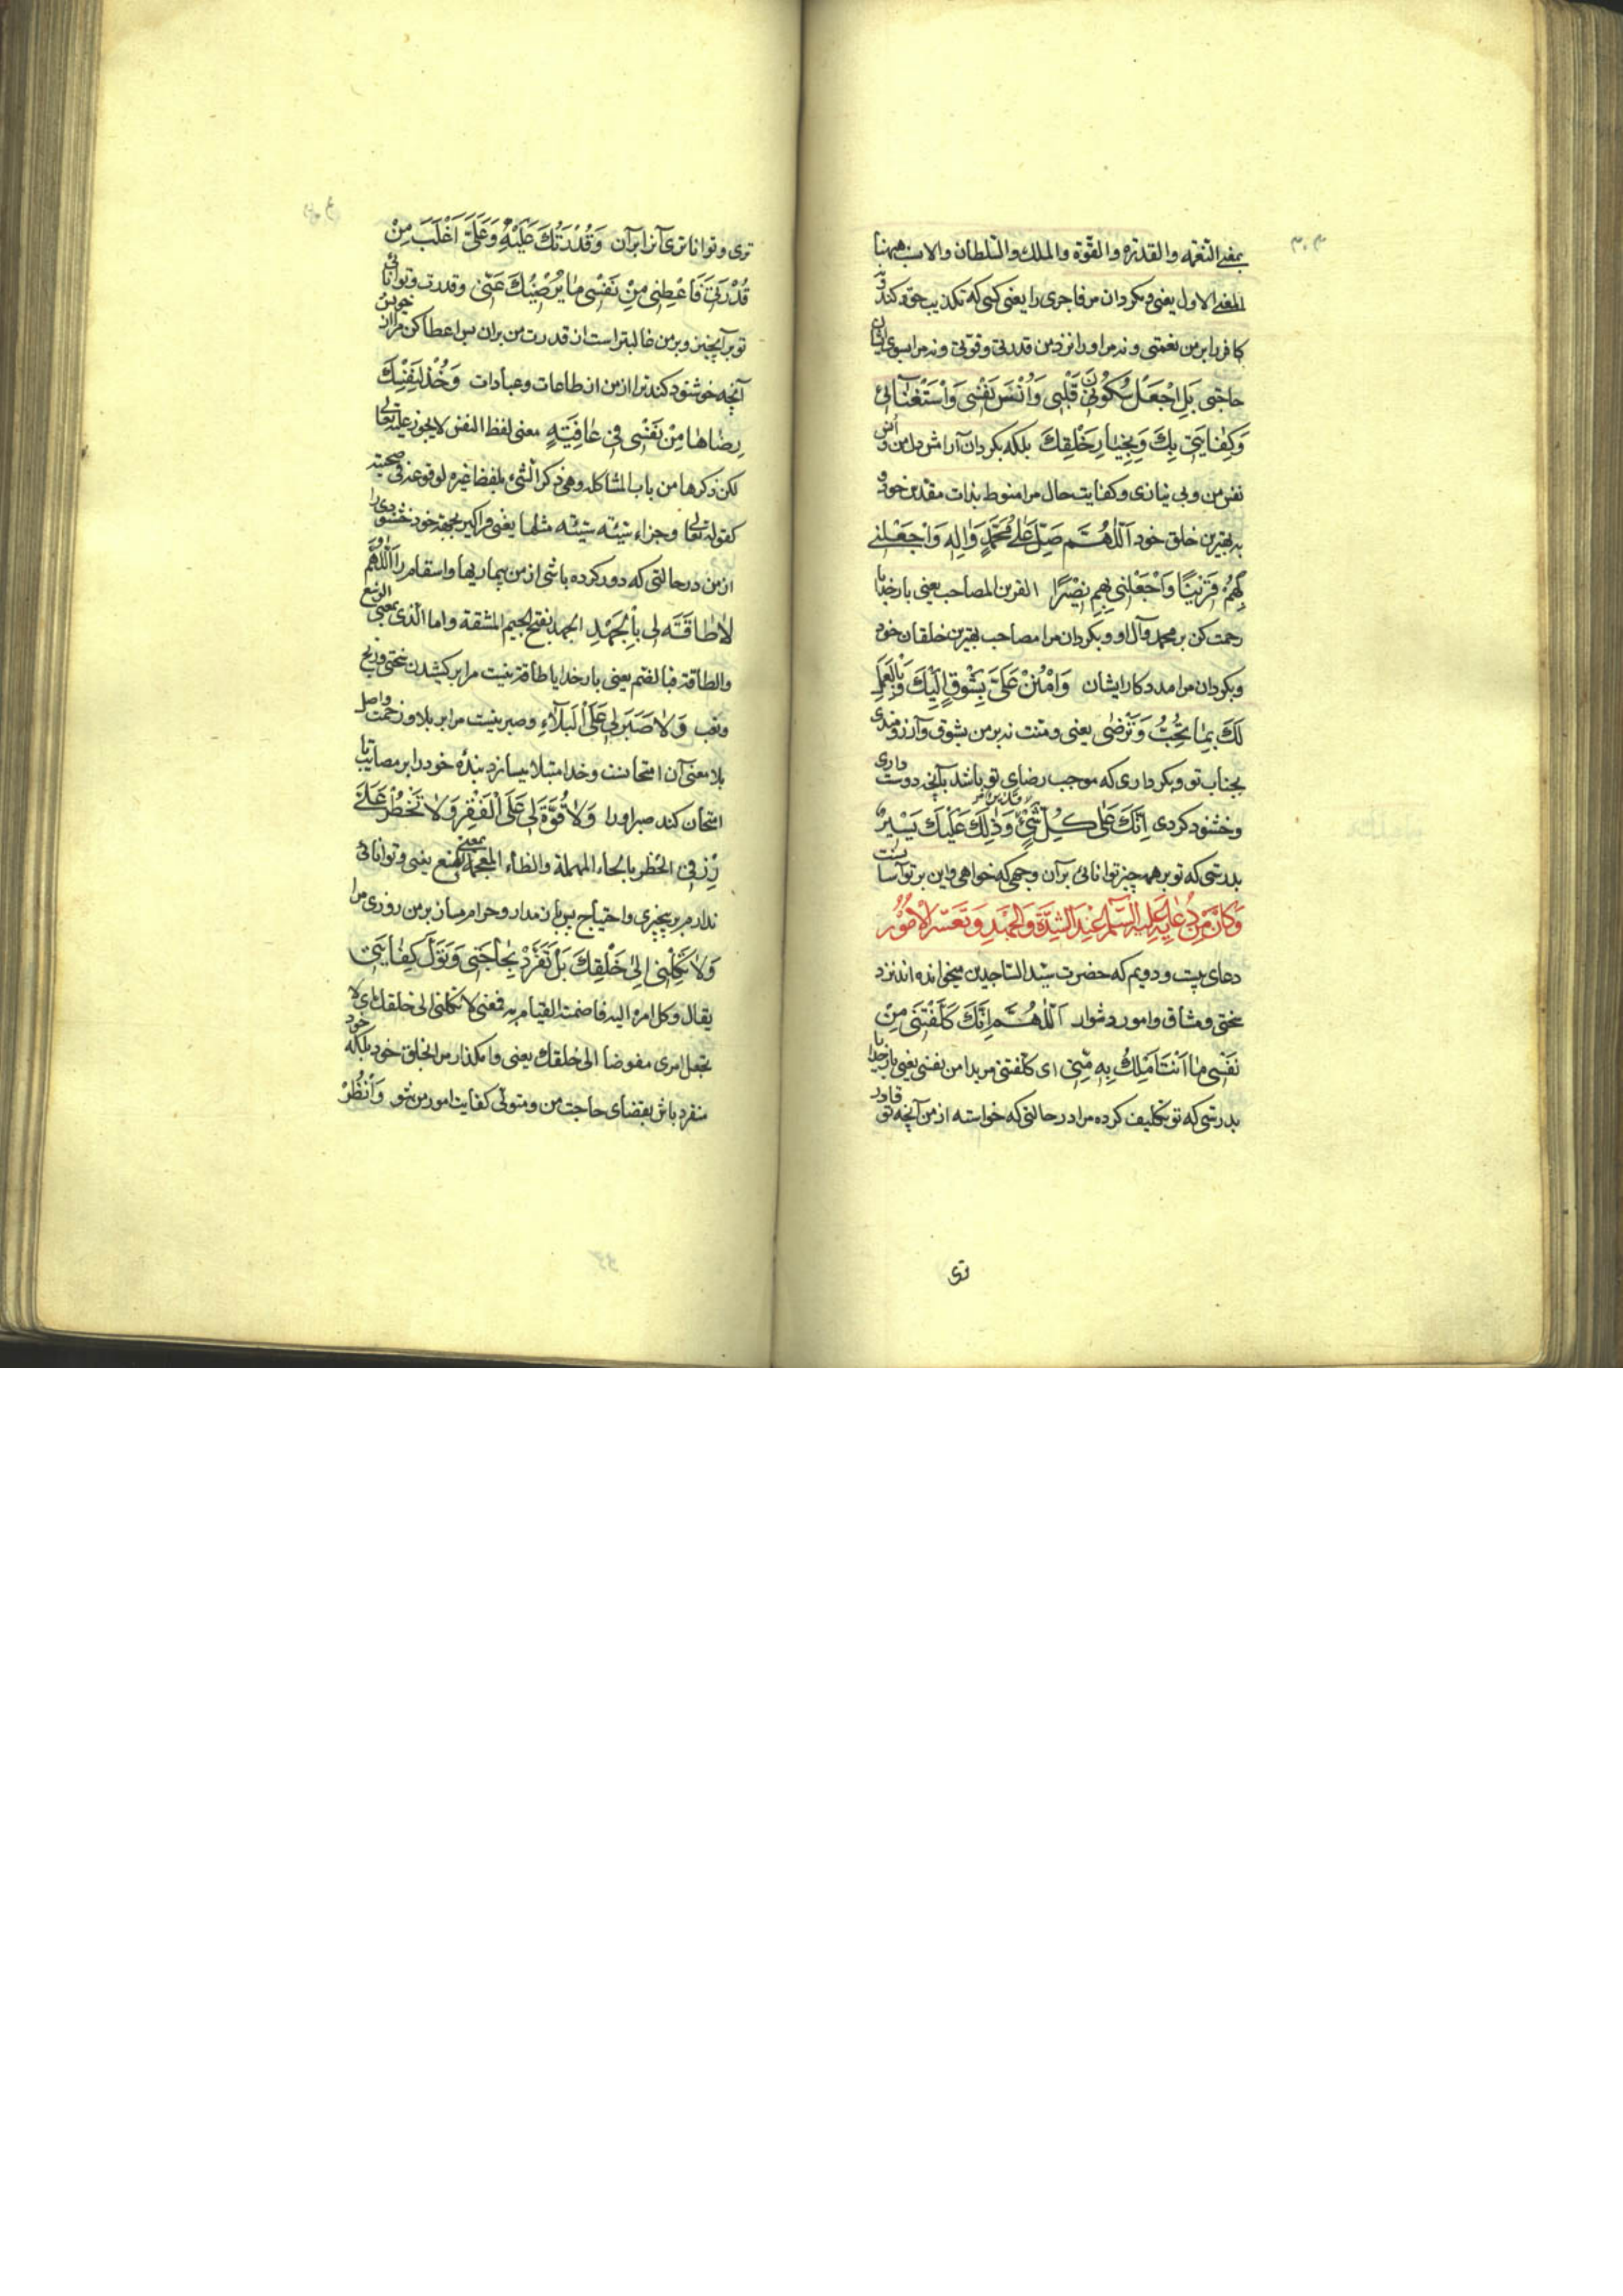 بمعنی النعمه والقدره والقوة والملك والسلطان والانسب ههنا
المعنی الاول یعنی و مکردان مر فاجری را یعنی کسی که تکذیب حق کند و نه
کافر را بر من نعمتی و نه مر او را نزد من قدرتی و قوتی و نه مرا بسوی ایشان
حاجتی بَلِ اجْعَلْ سُكُونَ قَلْبِی وَاُنْسَ نَفْسِی وَاسْتِغْنَآئِی
وَكِفَایَتِی بِكَ وَبِخِیَارِ خَلْقِكَ بلکه بکردان آرامش دل من و انس
نفس من و بی نیازی و کفایت حال مرا منوط بذات مقدس خود و
به بهترین خلق خود اَللّٰهُمَّ صَلِّ عَلٰی مُحَمَّدٍ وَاٰلِهِ وَاجْعَلْنِی
لَهُمْ قَرِینًا وَاجْعَلْنِی لَهُمْ نَصِیْرًا القرین المصاحب یعنی بار خدایا
رحمت کن بر محمد و آل او و بکردان مرا مصاحب بهترین خلقان خود
و بکردان مرا مددکار ایشان وَامْنُنْ عَلَیَّ بِشَوْقٍ اِلَیْكَ وَبِالْعَمَلِ
لَكَ بِمَا تُحِبُّ وَتَرْضٰی یعنی و منت نه بر من بشوق و آرزومندی
بجناب تو و بکرداری که موجب رضای تو باشد بآنچه دوست داری
و خشنود کردی اِنَّكَ عَلٰی كُلِّ شَیْءٍ قَدِیرٌ وَذٰلِكَ عَلَیْكَ یَسِیْرٌ
بدرستی که تو بر همه چیز توانائی بر آن وجهی که خواهی و این بر تو آسانست
وَكَانَ مِنْ دُعَائِهِ عَلَیْهِ السَّلَمُ عِنْدَ الشِّدَّةِ وَالْجَهْدِ وَتَعَسُّرِ الْاُمُوْرِ
دعای بیست و دویم که حضرت سید الساجدین میخوانده اند نزد
سختی و مشاق و امور دشوار اَللّٰهُمَّ اِنَّكَ كَلَّفْتَنِی مِنْ
نَفْسِی مَا اَنْتَ اَمْلَكُ بِهِ مِنِّی ای کلفتنی مریدا من نفسی یعنی بار خدایا
بدرستی که تو تکلیف کرده مرا در حالتی که خواسته از من آنچه تو قادر
تری
تری و تواناتری آنرا بر آن وَقُدْرَتُكَ عَلَیْهِ وَعَلَیَّ اَغْلَبُ مِنْ
قُدْرَتِی فَاَعْطِنِی مِنْ نَفْسِی مَا یُرْضِیْكَ عَنِّی و قدرت و توانائی
تو بر آنچیز و بر من غالبتر است از قدرت من بر آن پس اعطا کن مرا از خویش
آنچه خوشنود کند ترا از من از طاعات و عبادات وَخُذْ لِنَفْسِكَ
رِضَاهَا مِنْ نَفْسِی فِی عَافِیَةٍ معنی لفظ النفس لا یجوز علیه تعالی
لکن ذکرها من باب المشاکله وهی ذکر الشیء بلفظ غیره لوقوعه فی صحبته
کقوله تعالی وجزاء سیئة سیئة مثلها یعنی و فراکیر بجهة خود خشنودی را
از من در حالتی که دور کرده باشی از من بیماریها و اسقام را اَللّٰهُمَّ
لَا طَاقَةَ لِی بِالْجَهْدِ الجهد بفتح الجیم المشقة واما الذی بمعنی الوسع
والطاقة فبالضم یعنی بار خدایا طاقة نیست مرا بر کشیدن سختی و رنج
و تعب وَلَا صَبْرَ لِی عَلَی الْبَلَآءِ و صبر نیست مرا بر بلا و زحمت و اصل
بلا معنی آن امتحانست و خدا مبتلا میسازد بنده خود را بر مصائب تا
امتحان کند صبر او را وَلَا قُوَّةَ لِی عَلَی الْفَقْرِ وَلَا تَحْظُرْ عَلَیَّ
رِزْقِی الحظر بالحاء المهملة والظاء المعجمة بمعنی المنع یعنی و توانائی
ندارم بر بیچیزی و احتیاج پس باز مدار و حرام مساز بر من روزی مرا
وَلَا تَكِلْنِی اِلٰی خَلْقِكَ بَلْ تَفَرَّدْ بِحَاجَتِی وَتَوَلَّ كِفَایَتِی
یقال وکل امره الیه فمعنی لا تکلنی الی خلقك ای لا
تجعل امری مفوضا الی خلقك یعنی و امکذار مرا بخلق خود بلکه خود
منفرد باش بقضای حاجت من و متولی کفایت امور من شو وَانْظُرْ